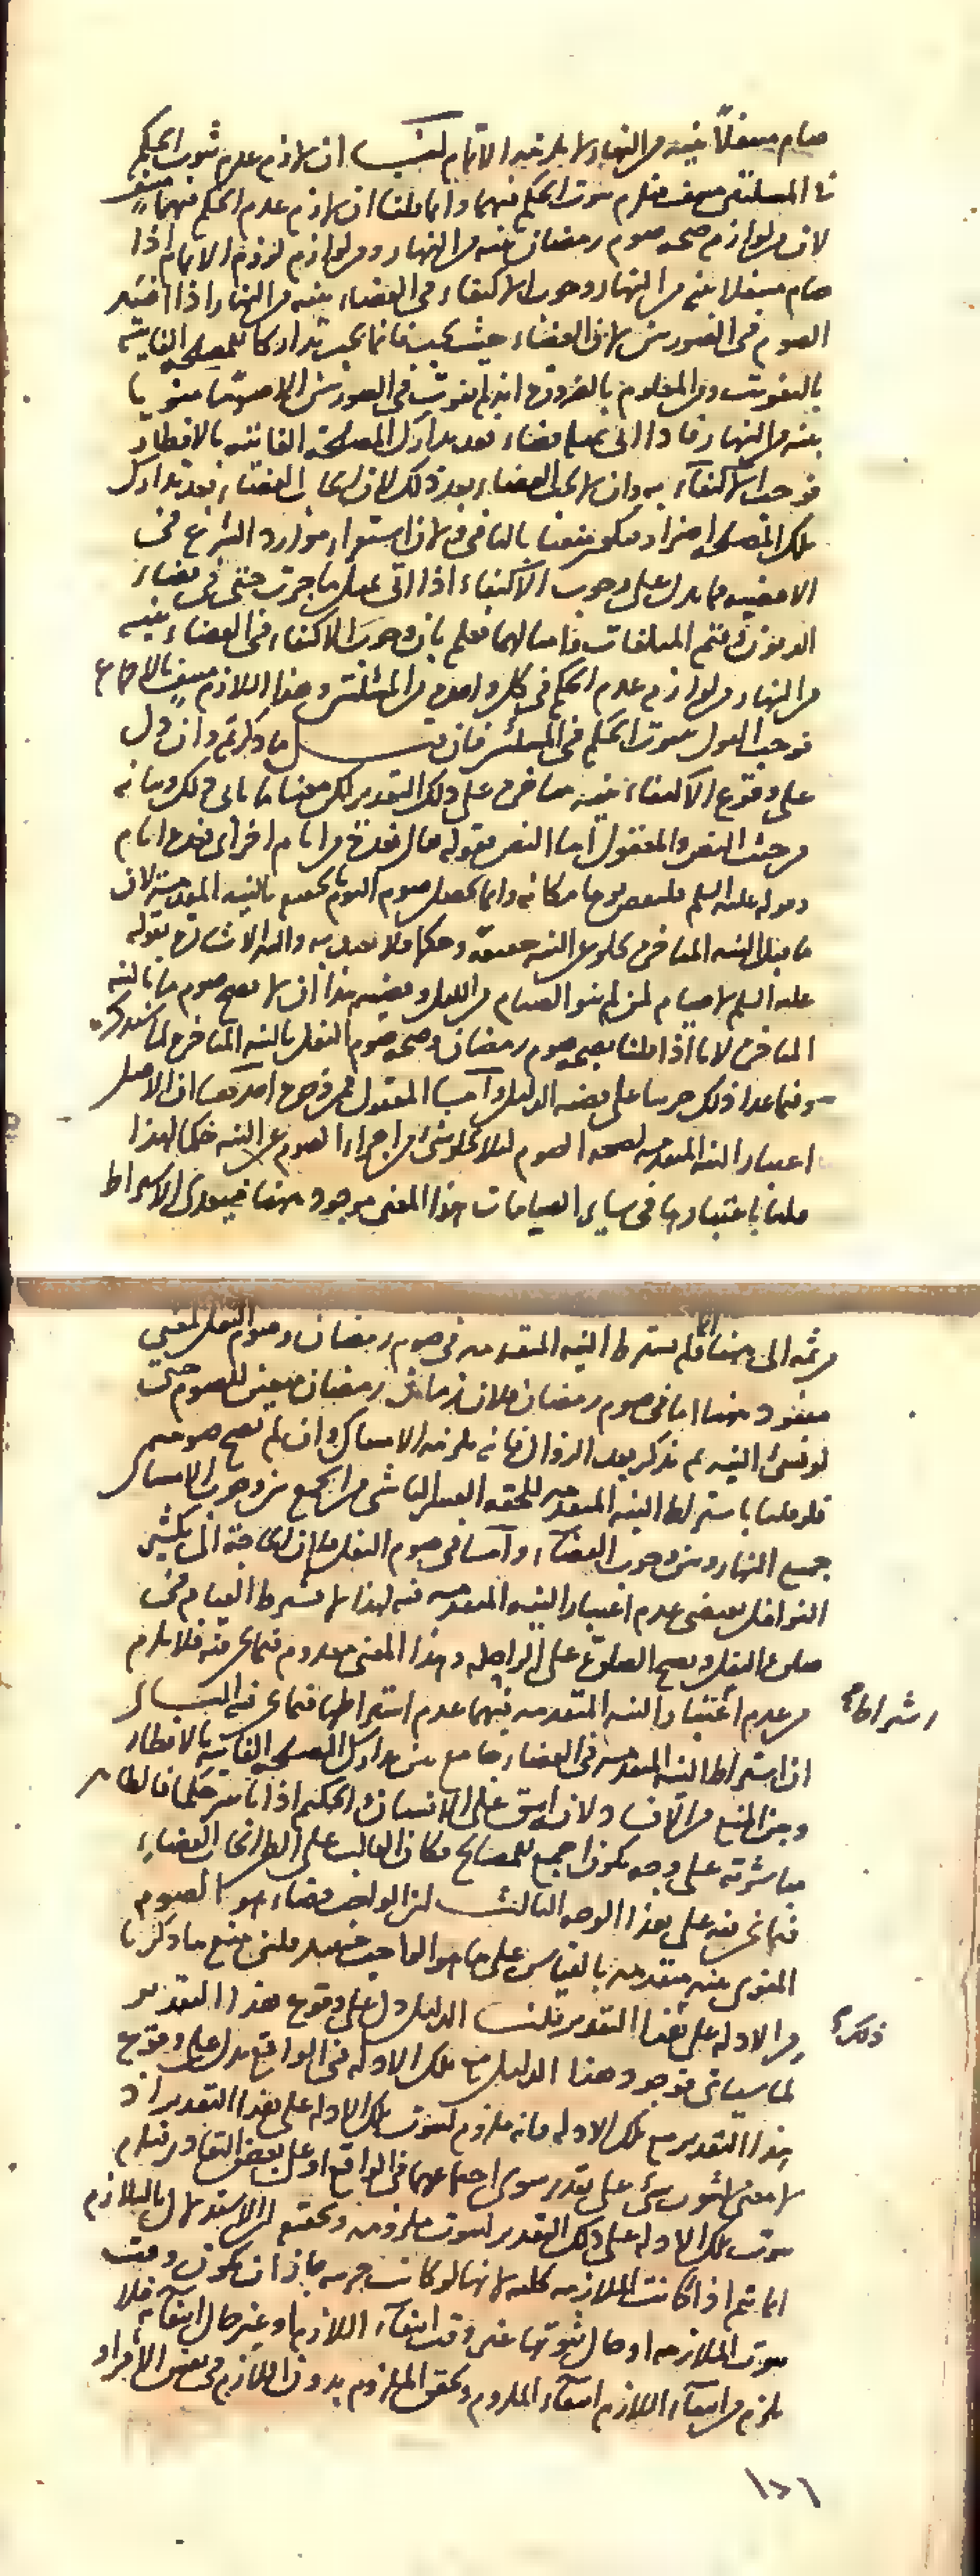 صام متنفلا بنية من النهار لا يلزمه الاتمام لنا ان لازم عدم ثبوت الحكم
في المسئلتين منتف فيلزم ثبوت الحكم فيهما وانما قلنا ان لازم عدم الحكم فيهما منتف
لان من لوازم صحة صوم رمضان بنية من النهار ومن لوازم لزوم الاتمام اذا
صام متنفلا بنية من النهار وجوب الاكتفاء في القضاء بنية من النهار اذا
الصوم في الصورتين لان القضاء حيث يجب فانما يجب تداركا للمصلحة الفايتة
بالتفويت ومن المعلوم بالضرورة انه لم يفوت في الصورتين الا
بنية من النهار فاذا اتى بمثله قضاء فقد تدارك المصلحة الفائتة بالافطار
فوجب الاكتفاء به وان لا يجب القضاء بعد ذلك لان ايجاب القضاء بعد تدارك
تلك المصلحة اضرار فيكون منتفيا بالنافي ولان استقراء موارد الشرع في
الاقضية مما يدل على وجوب الاكتفاء اذا اتى بمثل ما حتى في قضاء
الديون وقيم المتلفات وامثالهما فعلم بان وجوب الاكتفاء في القضاء بنية
من النهار من لوازم عدم الحكم في كل واحدة من المسئلتين وهذا اللازم منتف بالاجماع
فوجب القول بثبوت الحكم في المسئلتين فان قيل ما ذكرتم وان دل
على وقوع الاكتفاء بنية متاخرة على ذلك التقدير لكن معنا ما يابى ذلك وبيانه
من حيث النص والمعقول اما النص فقوله تعالى فعدة من ايام اخر اى فعدة ايام
وقوله عليه السلم فليقض يوما مكانه وانما يحصل صوم اليوم بجميعه بالنية المتقدمة لان
ما قبل النية المتاخرة يخلو عن النية حقيقة وحكما فلا يعتد به واليه الاشارة بقوله
عليه السلم لا صيام لمن لم ينو الصيام من الليل وقضية هذا ان لا يصح صوم ما بالنية
المتاخرة الا انا اذا قلنا بصحة صوم رمضان وصحة صوم النفل بالنية المتاخرة لما سنذكره
وفيما عدا ذلك جرينا على قضية الدليل واما المعقول فمن وجوه احدها ان الاصل
اعتبار النية المتقدمة لصحة الصوم لئلا يخلو شئ من اجزاء الصوم عن النية حكما لهذا
قلنا باعتبارها في ساير الصيامات وهذا المعنى موجود ههنا فيتعدى الاشتراط
من ثمه الى ههنا وانما لم يشترط النية المتقدمة في صوم رمضان وصوم النفل لمعنى
مفقود ههنا اما في صوم رمضان فلان زمان رمضان متعين للصوم حتى
لو نسى النية ثم تذكر بعد الزوال فانه يلزمه الامساك وان لم يصح صومه
فلو قلنا باشتراط النية المتقدمة للحقه العسر الناشى من الجمع بين وجوب الامساك
جميع النهار وبين وجوب القضاء واما في صوم النفل فلان الحاجة الى تكثير
النوافل يقتضى عدم اعتبار النية المتقدمة فيه لهذا لا يشترط القيام في
صلوة النفل ويصح الصلوة على الراحلة وهذا المعنى معدوم فيما نحن فيه فلا يلزم
من عدم اعتبار النية المتقدمة فيهما عدم اشتراطها فيما نحن فيه الثانى
اشتراط
ان اشتراط النية المتقدمة في القضاء جامع بين تدارك المصلحة الفائتة بالافطار
وبين المنع من الافساد لانه اشق على الانسان والحكم اذا
مباشرته على وجه يكون اجمع للمصالح فكان الغالب على الظن ايجاب القضاء
فيما نحن فيه على هذا الوجه الثالث ان الواجب قضاء هو الصوم
المنوى بنية متقدمة بالقياس على ما هو الواجب فلئن منع ما ذكرنا
من الادلة على هذا التقدير قلنا الدليل دل على وقوع هذا التقدير
ذلك
لما سياتى فوجود هذا الدليل مع تلك الادلة في الواقع يدل على وقوع
هذا التقدير مع تلك الادلة وانه ملزوم لثبوت تلك الادلة على هذا التقدير اذ
لا معنى لثبوت شئ على تقدير سوى اجتماعهما في الواقع او على بعض التقادير فيلزم
ثبوت تلك الادلة على ذلك التقدير لثبوت ملزومه وتحقيقه ان الاستدلال بالتلازم
انما يتم اذا كانت الملازمة كلية لانها لو كانت جزيية جاز ان يكون وقت
ثبوت الملازمة او حال ثبوتها غير وقت انتفاء اللازم او غير حال انتفائه فلا
يلزم من انتفاء اللازم انتفاء الملزوم وتحقق الملزوم بدون اللازم في بعض الافراد
١٥١